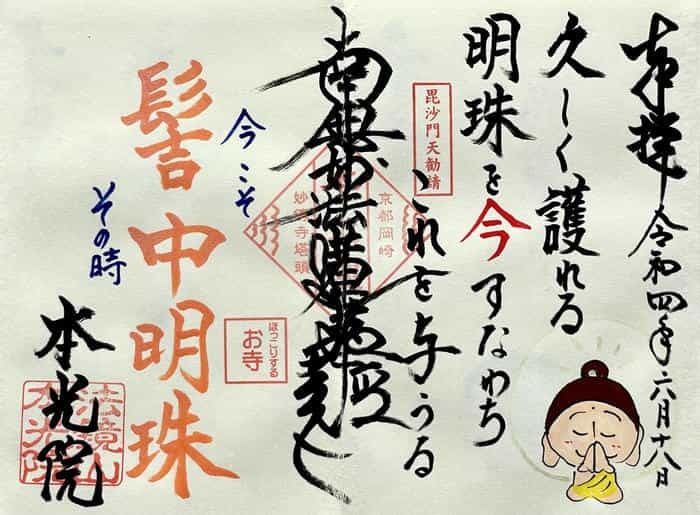 奉拝 令和四年六月十八日
久しく護れる
明珠を今すなわち
これを与うる
毘沙門天勧請
南無妙法蓮華経
京都岡崎
妙傳寺塔頭
今こそ
その時
髻中明珠
ほっこりする
お寺
本光院
法鏡山
本光院